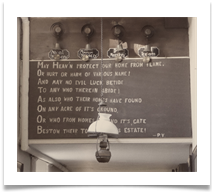 MAY HEAV'N PROTECT OUR HOME FROM FLAME,
OR HURT OR HARM OF VARIOUS NAME!
AND MAY NO EVIL LUCK BETIDE
TO ANY WHO THEREIN ABIDE;
AS ALSO WHO THEIR HOMES HAVE FOUND
ON ANY ACRE OF IT'S GROUND,
OR WHO FROM HOMES BEYOND IT'S GATE
BESTOW THEIR ESTATE!